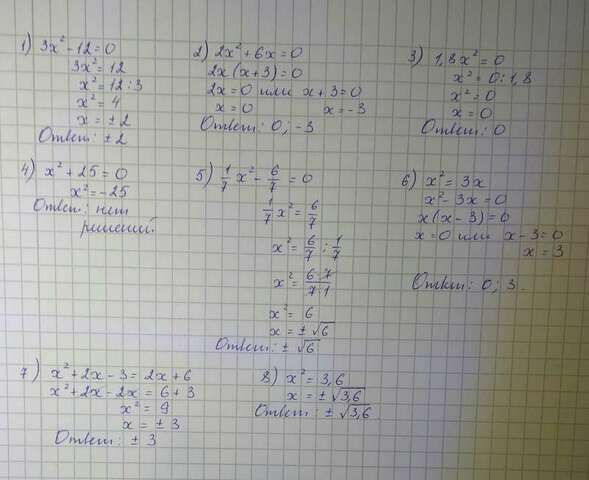 1) 3x² - 12 = 0
3x² = 12
x² = 12 : 3
x² = 4
x = ± 2
Ответ: ± 2
2) 2x² + 6x = 0
2x (x + 3) = 0
2x = 0 или x + 3 = 0
x = 0 x = -3
Ответ: 0; -3
3) 1,8x² = 0
x² = 0 : 1,8
x² = 0
x = 0
Ответ: 0
4) x² + 25 = 0
x² = -25
Ответ: нет
решений.
5) 1/7 x² - 6/7 = 0
1/7 x² = 6/7
x² = 6/7 : 1/7
x² = 6·7/7·1
x² = 6
x = ± √6
Ответ: ± √6
6) x² = 3x
x² - 3x = 0
x (x - 3) = 0
x = 0 или x - 3 = 0
x = 3
Ответ: 0; 3.
7) x² + 2x - 3 = 2x + 6
x² + 2x - 2x = 6 + 3
x² = 9
x = ± 3
Ответ: ± 3
8) x² = 3,6
x = ± √3,6
Ответ: ± √3,6